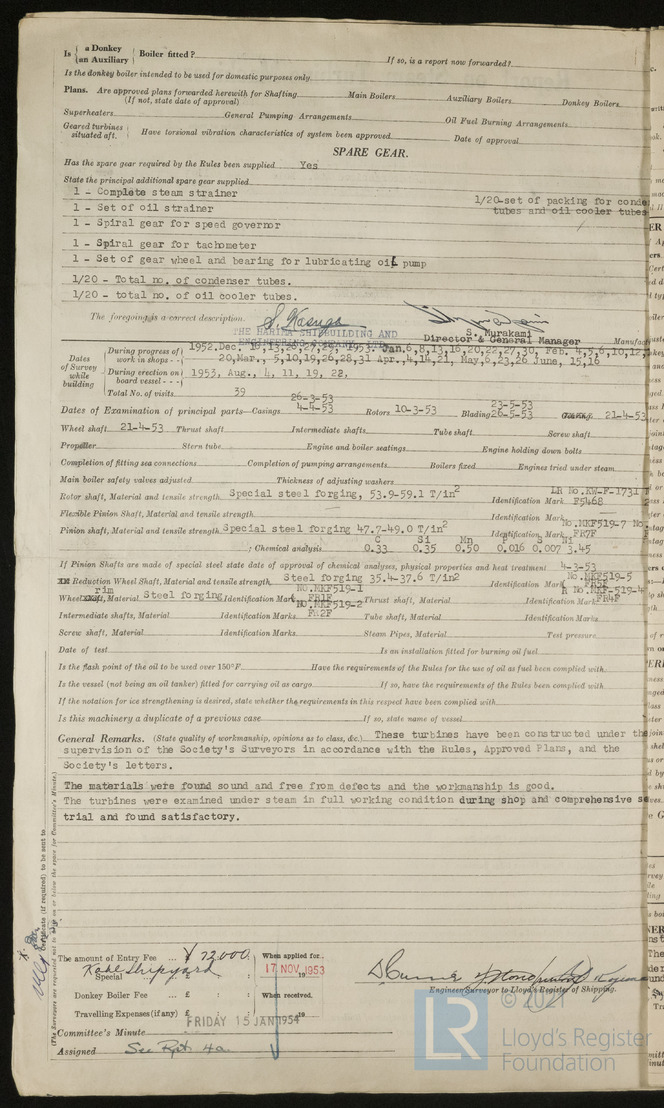 Is { a Donkey / an Auxiliary } Boiler fitted? If so, is a report now forwarded?
Is the donkey boiler intended to be used for domestic purposes only
Plans. Are approved plans forwarded herewith for Shafting Main Boilers Auxiliary Boilers Donkey Boilers
(If not, state date of approval)
Superheaters General Pumping Arrangements Oil Fuel Burning Arrangements
Geared turbines situated aft. } Have torsional vibration characteristics of system been approved Date of approval
SPARE GEAR.
Has the spare gear required by the Rules been supplied Yes
State the principal additional spare gear supplied
1 - Complete steam strainer 1/20-set of packing for conde
1 - Set of oil strainer tubes and oil cooler tubes
1 - Spiral gear for speed governor
1 - Spiral gear for tachometer
1 - Set of gear wheel and bearing for lubricating oil pump
1/20 - Total no. of condenser tubes.
1/20 - total no. of oil cooler tubes.
The foregoing is a correct description. S. Kasuga
THE HARIMA SHIPBUILDING AND S. Murakami
ENGINEERING COMPANY, LTD. Director & General Manager Manufac
Dates of Survey while building
During progress of work in shops - - 1952.Dec. 1953. Jan,6,8,13,16,20,22,27,30, Feb. 4,5,6,10,12,
20,Mar., 5,10,19,26,28,31 Apr.,4,14,21, May,6,23,26 June, 15,16
During erection on board vessel - - - 1953, Aug., 4, 11, 19, 22.
Total No. of visits 39
26-3-53 23-5-53
Dates of Examination of principal parts—Casings 4-4-53 Rotors 10-3-53 Blading 26-5-53 Gearing 21-4-53
Wheel shaft 21-4-53 Thrust shaft Intermediate shafts Tube shaft Screw shaft
Propeller Stern tube Engine and boiler seatings Engine holding down bolts
Completion of fitting sea connections Completion of pumping arrangements Boilers fixed Engines tried under steam
Main boiler safety valves adjusted Thickness of adjusting washers
LR No.KW-F-1731
Rotor shaft, Material and tensile strength Special steel forging, 53.9-59.1 T/in2 Identification Mark F5468
Flexible Pinion Shaft, Material and tensile strength Identification Mark
No.MKF519-7 No.
Pinion shaft, Material and tensile strength Special steel forging 47.7-49.0 T/in2 Identification Mark FR7F
C Si Mn P S Ni
; Chemical analysis 0.33 0.35 0.50 0.016 0.007 3.45
If Pinion Shafts are made of special steel state date of approval of chemical analyses, physical properties and heat treatment 4-3-53
No.MKF519-5
Reduction Wheel Shaft, Material and tensile strength Steel forging 35.4-37.6 T/in2 Identification Mark FR5F
rim NO.MKF519-1 R No.MKF-519-4
Wheel shafts, Material Steel forging Identification Mark FR1F Thrust shaft, Material Identification Mark FR4F
NO.MKF519-2
Intermediate shafts, Material Identification Marks FR2F Tube shaft, Material Identification Marks
Screw shaft, Material Identification Marks Steam Pipes, Material Test pressure
Date of test Is an installation fitted for burning oil fuel
Is the flash point of the oil to be used over 150°F. Have the requirements of the Rules for the use of oil as fuel been complied with
Is the vessel (not being an oil tanker) fitted for carrying oil as cargo If so, have the requirements of the Rules been complied with
If the notation for ice strengthening is desired, state whether the requirements in this respect have been complied with
Is this machinery a duplicate of a previous case If so, state name of vessel
General Remarks. (State quality of workmanship, opinions as to class, &c.) These turbines have been constructed under the
supervision of the Society's Surveyors in accordance with the Rules, Approved Plans, and the
Society's letters.
The materials were found sound and free from defects and the workmanship is good.
The turbines were examined under steam in full working condition during shop and comprehensive se
trial and found satisfactory.
Certificate (if required) to be sent to
(The Surveyors are requested not to write on or below the space for Committee's Minute.)
The amount of Entry Fee ... ¥ 72,000. When applied for
Kobe Shipyard
Special £ : : 17 NOV 1953 19
Donkey Boiler Fee ... £ : : When received,
Travelling Expenses (if any) £ 19
Engineer Surveyor to Lloyd's Register of Shipping.
FRIDAY 15 JAN 1954
Committee's Minute
Assigned See Rpt. 4a.
LR © 2021
Lloyd's Register
Foundation